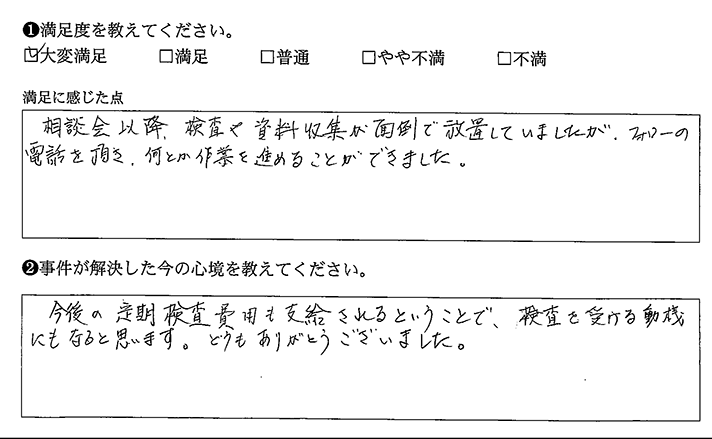 ❶満足度を教えてください。
☑大変満足 □満足 □普通 □やや不満 □不満
満足に感じた点
相談会以降、検査や資料収集が面倒で放置していましたが、フォローの
電話を頂き、何とか作業を進めることができました。
❷事件が解決した今の心境を教えてください。
今後の定期検査費用も支給されるということで、検査を受ける動機
にもなると思います。どうもありがとうございました。